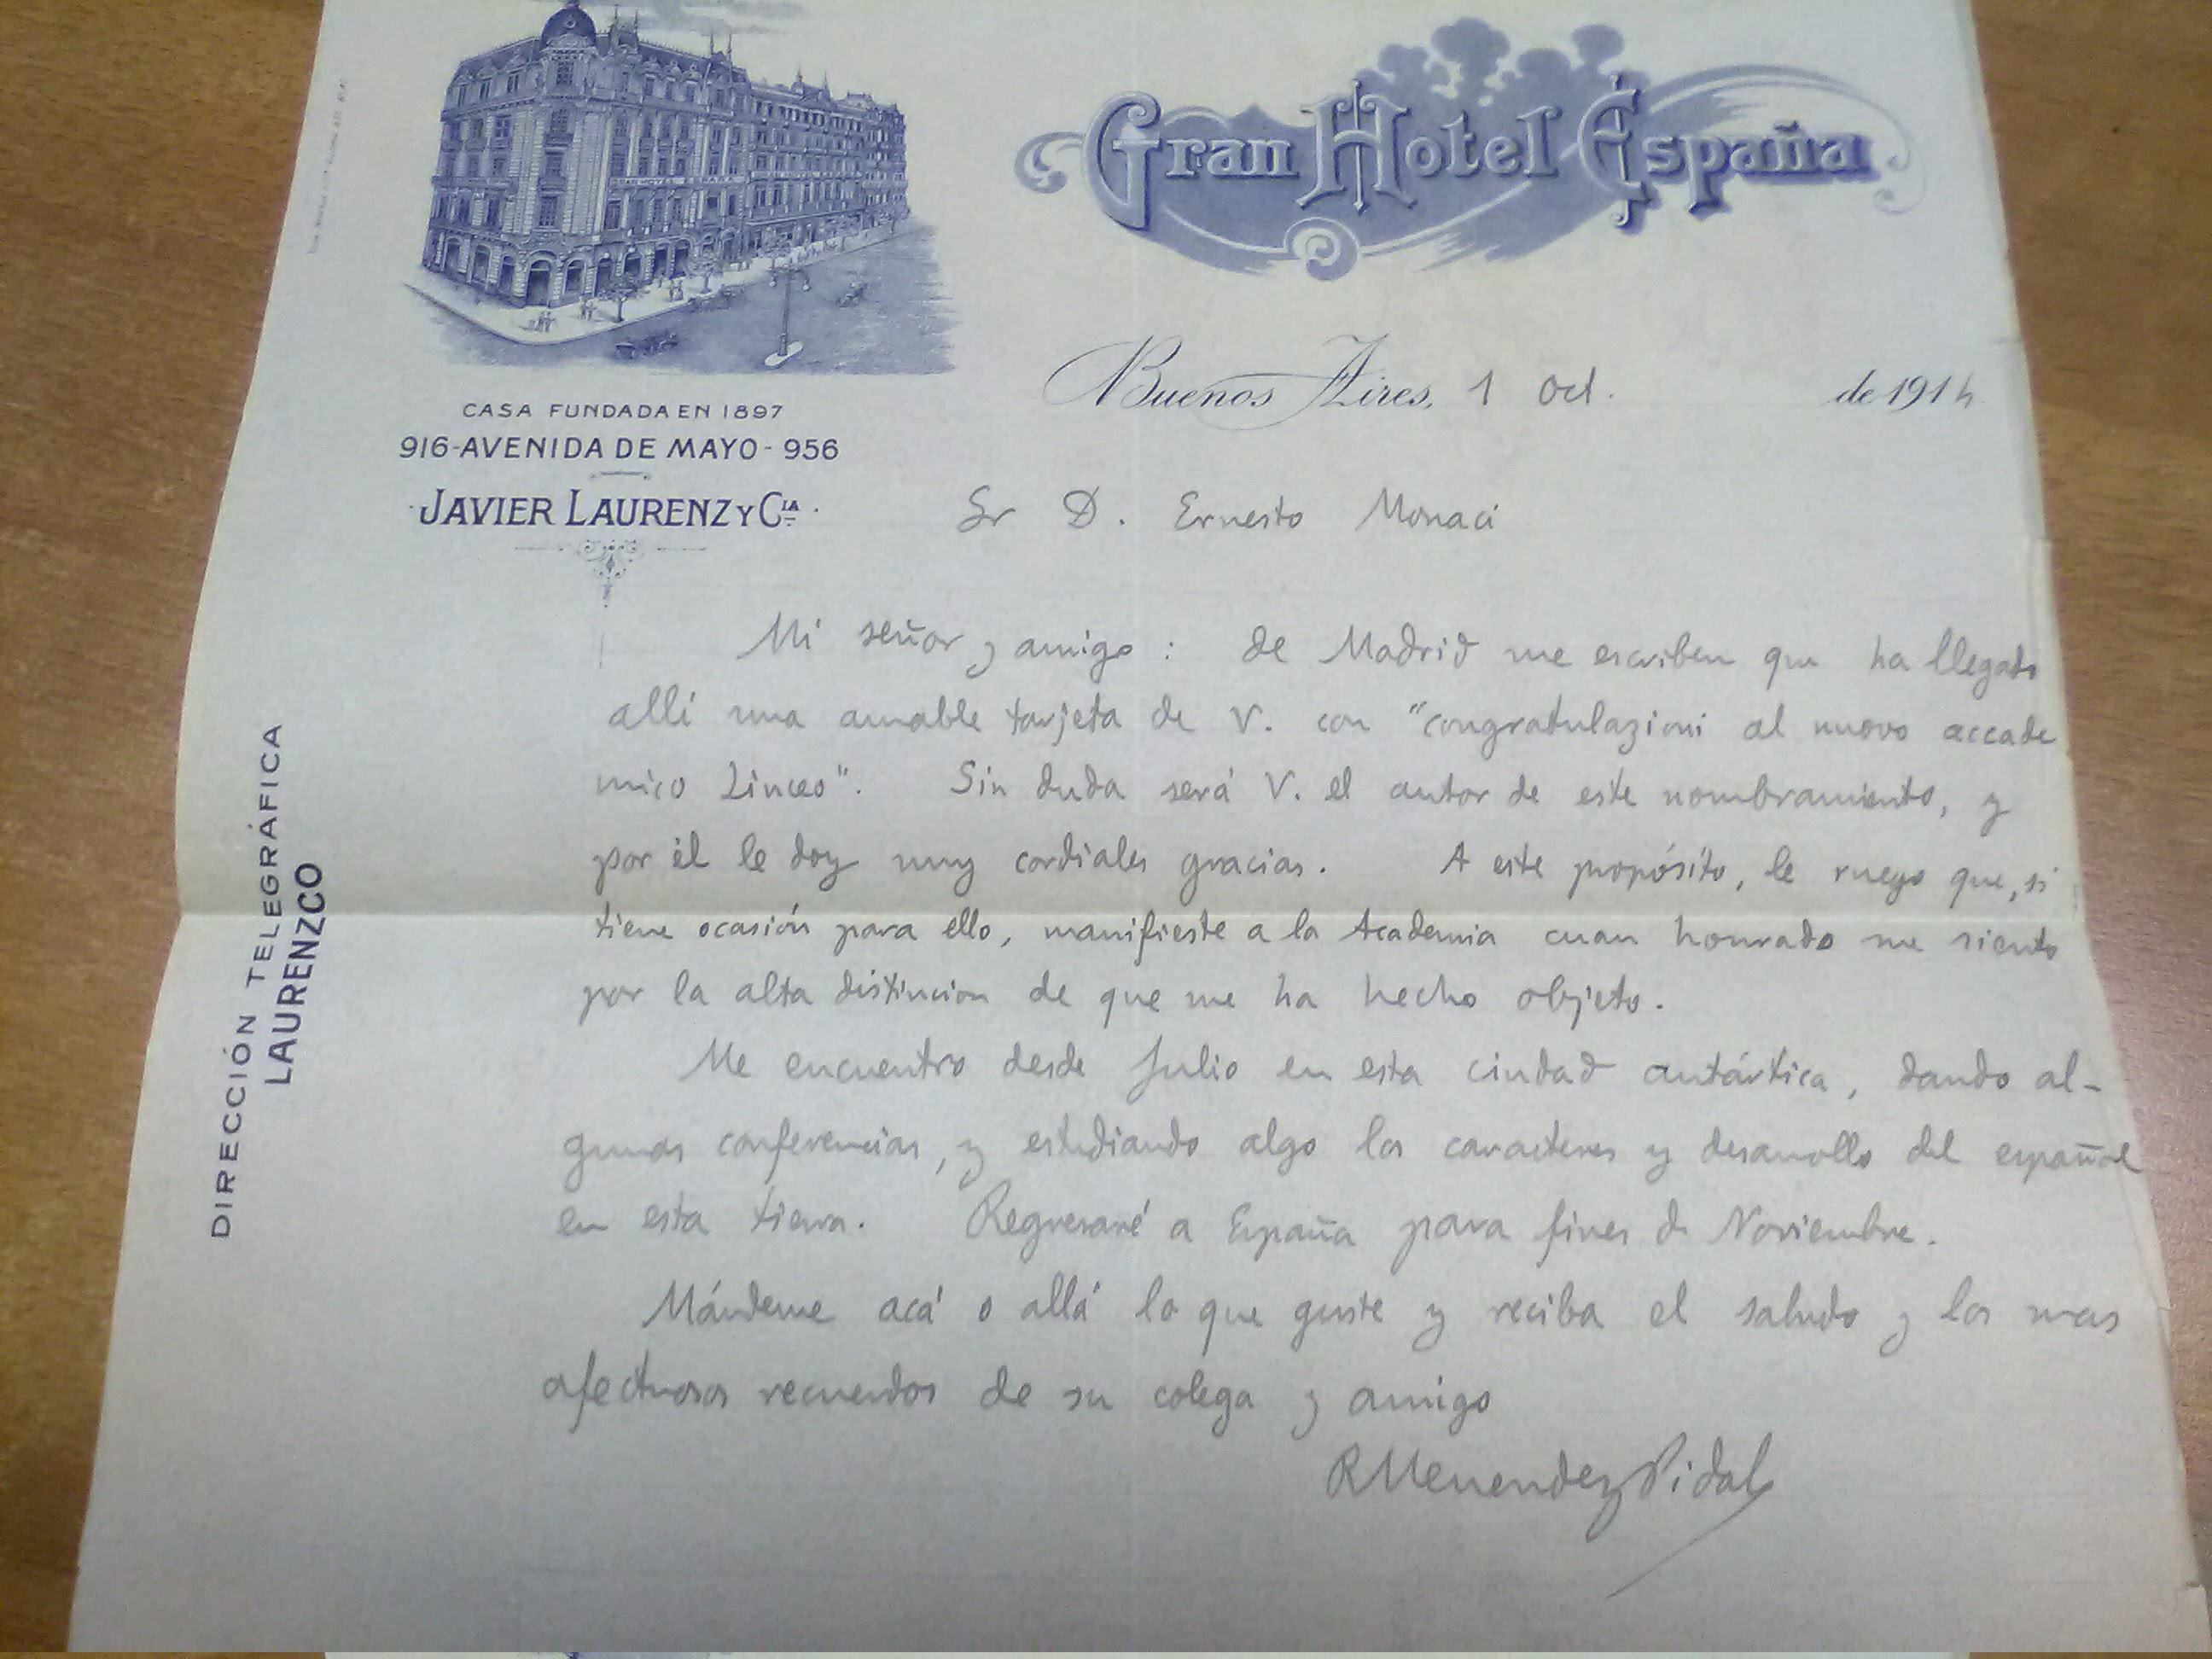 Gran Hotel España
CASA FUNDADA EN 1897
916-AVENIDA DE MAYO-956
·JAVIER LAURENZ Y Cía·
DIRECCIÓN TELEGRÁFICA
LAURENZCO
Buenos Aires, 1 Oct. de 1914
Sr D. Ernesto Monaci
Mi señor y amigo: de Madrid me escriben que ha llegado
allí una amable tarjeta de V. con "congratulazioni al nuovo accade
mico Linceo". Sin duda será V. el autor de este nombramiento, y
por él le doy muy cordiales gracias. A este propósito, le ruego que, si
tiene ocasión para ello, manifieste a la Academia cuan honrado me siento
por la alta distincion de que me ha hecho objeto.
Me encuentro desde Julio en esta ciudad antártica, dando al-
gunas conferencias, y estudiando algo los caracteres y desarrollo del español
en esta tierra. Regresaré a España para fines de Noviembre.
Mándeme acá o allá lo que guste y reciba el saludo y los mas
afectuosos recuerdos de su colega y amigo
R Menendez Pidal